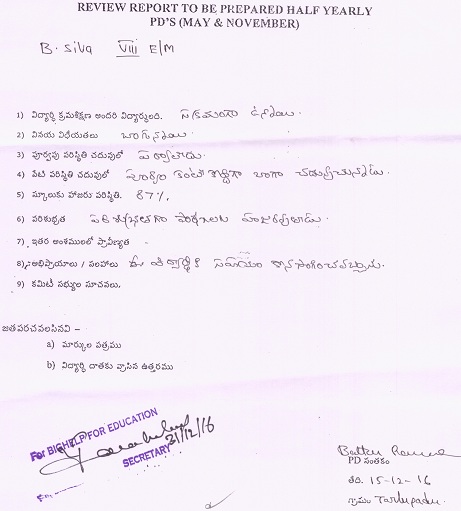 REVIEW REPORT TO BE PREPARED HALF YEARLY
PD'S (MAY & NOVEMBER)
B. Siva VIII E/M
1) విద్యార్థి క్రమశిక్షణ అందరి విద్యార్థులది. సక్రమంగా ఉన్నాయి.
2) వినయ విధేయతలు బాగున్నాయి.
3) పూర్వపు పరిస్థితి చదువులో పర్వాలేదు.
4) నేటి పరిస్థితి చదువులో పూర్వం కంటే కొద్దిగా బాగా చదువుచున్నాడు.
5) స్కూలుకు హాజరు పరిస్థితి. 87%.
6) పరిశుభ్రత పరిశుభ్రతగా పాఠశాలకు హాజరవుతాడు.
7) ఇతర అంశములలో ప్రావీణ్యత -
8) అభిప్రాయాలు / సలహాలు ఈ విద్యార్థికి సహాయం కొనసాగించవచ్చును.
9) కమిటీ సభ్యుల సూచనలు.
జతపరచవలసినవి –
a) మార్కుల పత్రము
b) విద్యార్థి దాతకు వ్రాసిన ఉత్తరము
For BIGHELP FOR EDUCATION
21/12/16
SECRETARY
PD సంతకం
తేది. 15-12-16
గ్రామం Tarlupadu.